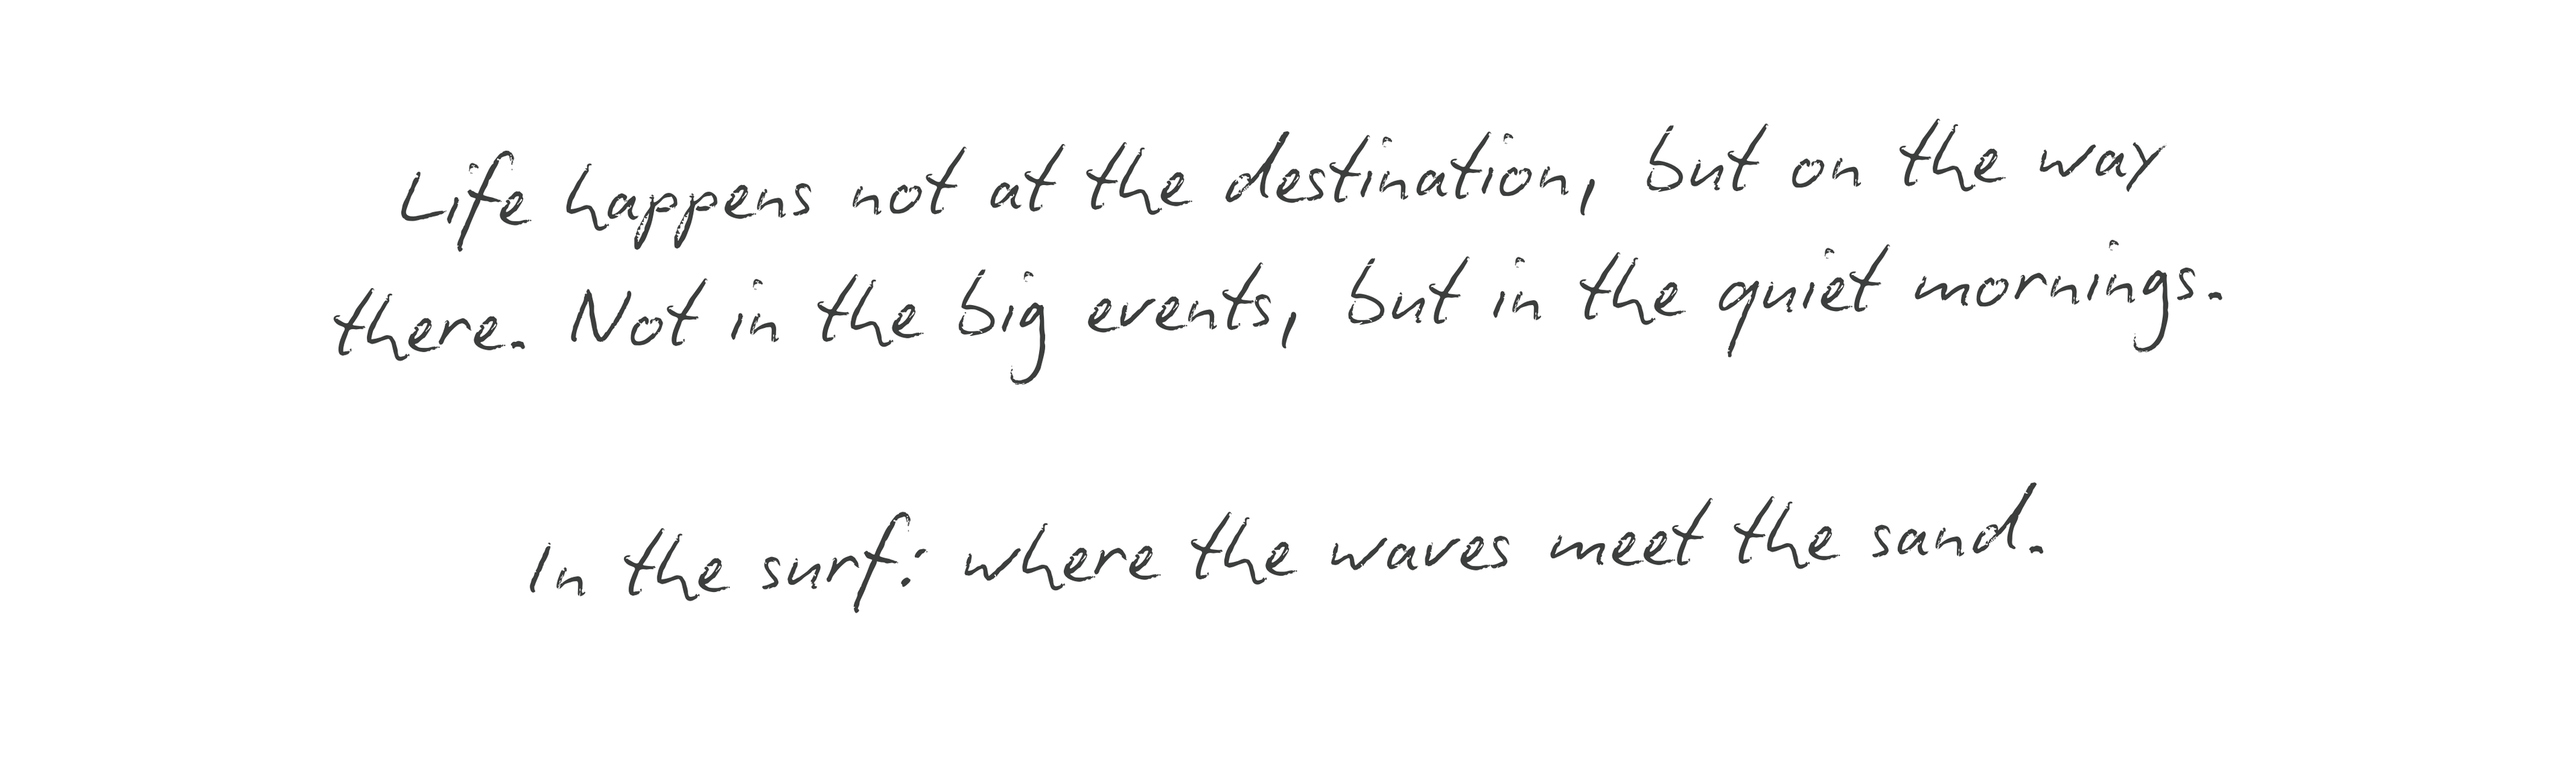 Life happens not at the destination, but on the way
there. Not in the big events, but in the quiet mornings.
In the surf: where the waves meet the sand.